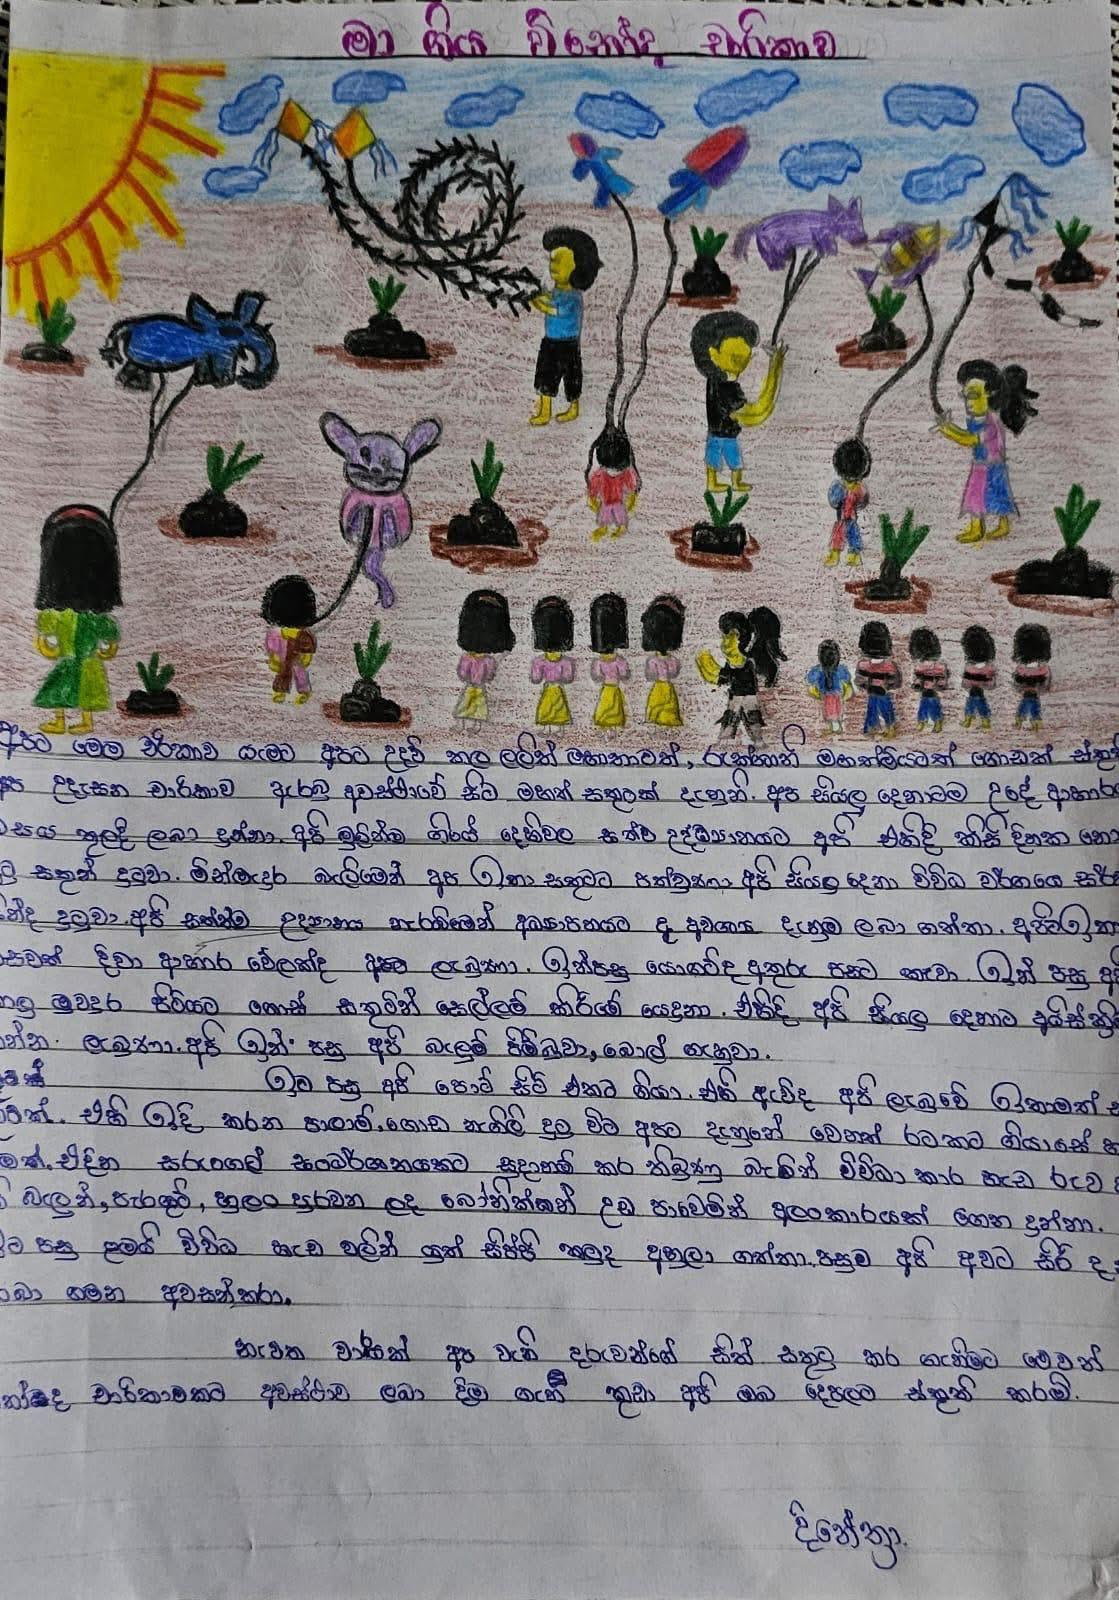 මා ගිය විනෝද චාරිකාව
අපට මෙම චරිකාව යෑමට අපට උදව් කල ලලිත් මහතාටත්, රුක්මනි මහත්මියටත් ගොඩක් ස්තූති
අප උදෑසන චාරිකාව ඇරඹූ අවස්ථාවේ සිට මහත් සතුටක් දැනුනි. අප සියලු දෙනාටම උදේ ආහාරය
බසය තුලදී ලබා දුන්නා. අපි මුලින්ම ගියේ දෙහිවල සත්ව උද්ධ්‍යානයට අපි එහිදී කිසි දිනක නො
වූ සතුන් දුටුවා. මින්මැදුර බැලීමෙන් අප ඉතා සතුටට පත්වුණා අපි සියලු දෙනා විවිධ වර්ගයෙ
දුටුවා. අපි සත්ත්ව උද්‍යානය නැරඹීමෙන් අධ්‍යාපනයට ද අවශ්‍ය දැනුම ලබා ගත්තා. අපිට ඉතා
රසවත් දිවා ආහාර වේලක්ද අපට ලැබුණා. ඉන්පසු යොගට්ද අතුරු පසට කෑවා. ඉන් පසු අපි
ගාලු මුවදුර පිටියට ගොස් සතුටින් සෙල්ලම් කිරීමේ යෙදුනා. එහිදී අපි සියලු දෙනාට අයිස්ක්‍රීම්
ලැබුණා. අපි ඉන් පසු අපි බැලුම් පිම්බුවා, බෝල ගැහුවා.
ඉන් පසු අපි පොට් සිටි එකට ගියා. එහි ඇවිද අපි ලැබුවේ ඉතාමත්
එහි ඉදි කරන පාලම්, ගොඩ නැගිලි දුටු විට අපට දැනුනේ වෙනත් රටකට ගියාසේ
එදින සරුංගල් සංදර්ශනයකට සූදානම් කර තිබුණු බැවින් විවිධා කාර හැඩ රුව
බැලුන්, පැරෂුට්, හුලං පුරවන ලද බෝනික්කන් උඩ පාවෙමින් අලංකාරයක් ගෙන දුන්නා.
පසු ළමයි විවිධ හැඩ වලින් යුත් සිප්පි කටුද අහුලා ගත්තා. පසුව අපි අවට සිරි
ලබා ගමන අවසන්කරා.
නැවත වාරයක් අප වැනි දරුවන්ගේ සිත් සතුටු කර ගැනීමට මෙවන්
විනෝද චාරිකාවකට අවස්ථාව ලබා දීම ගැන කුඩා අපි ඔබ දෙපලට ස්තූති කරමි.
දිනේත්‍රා.